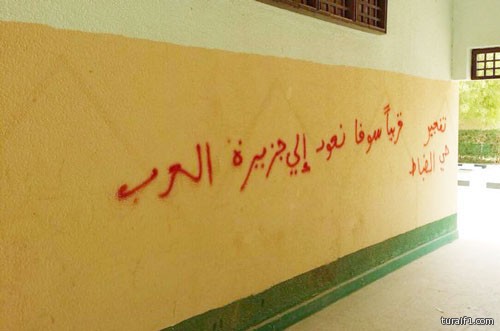 تفجير
حي الضباط
قريباً سوفا نعود إلي جزيرة العرب
turaif1.com